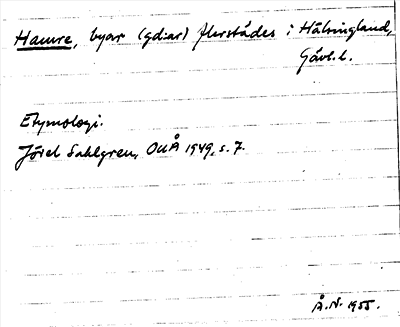 Hamre, byar (gdiar) flerstädes i Hälsingland,
Gävl. l.
Etymologi.
Jöran Sahlgren, OUÅ 1949, s. 7.
Å.N. 1955.